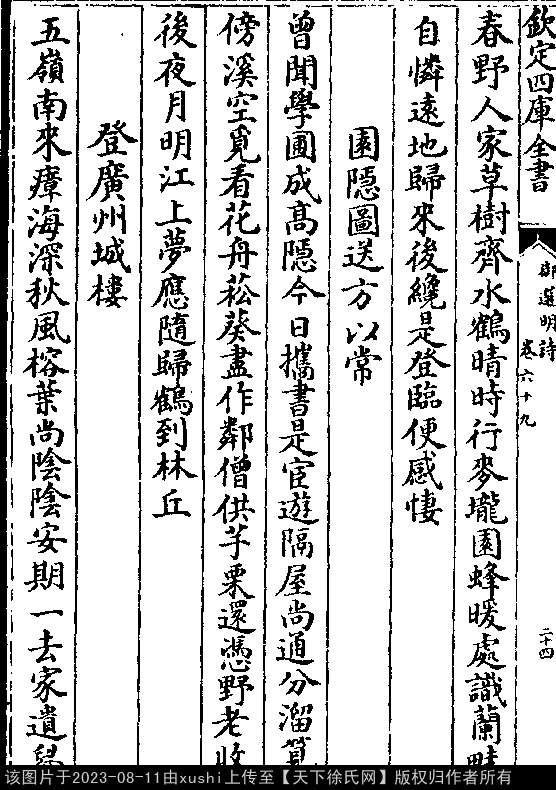 欽定四庫全書
御選明詩
卷六十九
二十四
春野人家草樹齊水鶴晴時行麥壠園蜂暖處識蘭畦
自憐遠地歸來後纔是登臨便感悽
園隱圖送方以常
曾聞學圃成高隱今日攜書是宦遊隔屋尚通分溜筧
傍溪空覓看花舟菘葵盡作鄰僧供芋栗還憑野老收
後夜月明江上夢應隨歸鶴到林丘
登廣州城樓
五嶺南來瘴海深秋風榕葉尚陰陰安期一去家遺
该图片于2023-08-11由xushi上传至【天下徐氏网】版权归作者所有